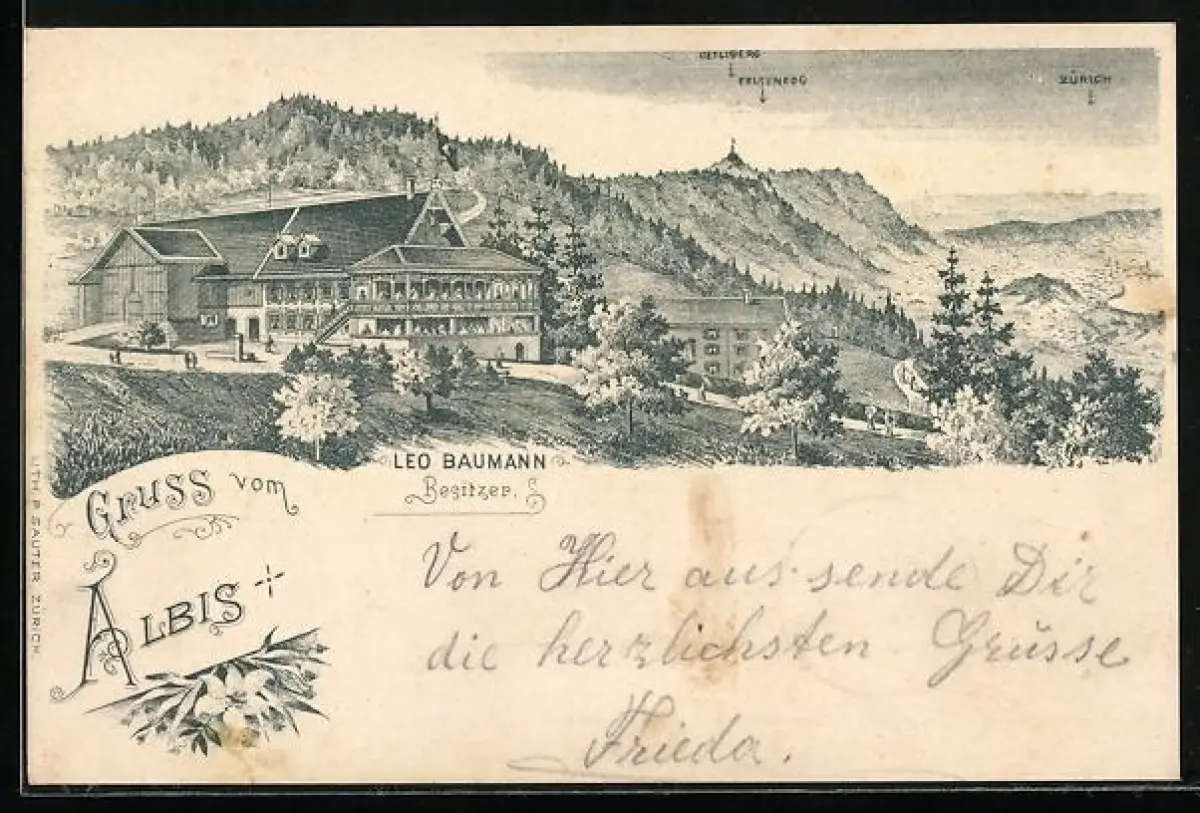 UETLIBERG
FELSENEGG
ZÜRICH
LEO BAUMANN
Besitzer.
Gruss vom
ALBIS
LITH. P. SAUTER ZÜRICH.
Von Hier aus sende Dir
die herzlichsten Grüsse
Frieda.